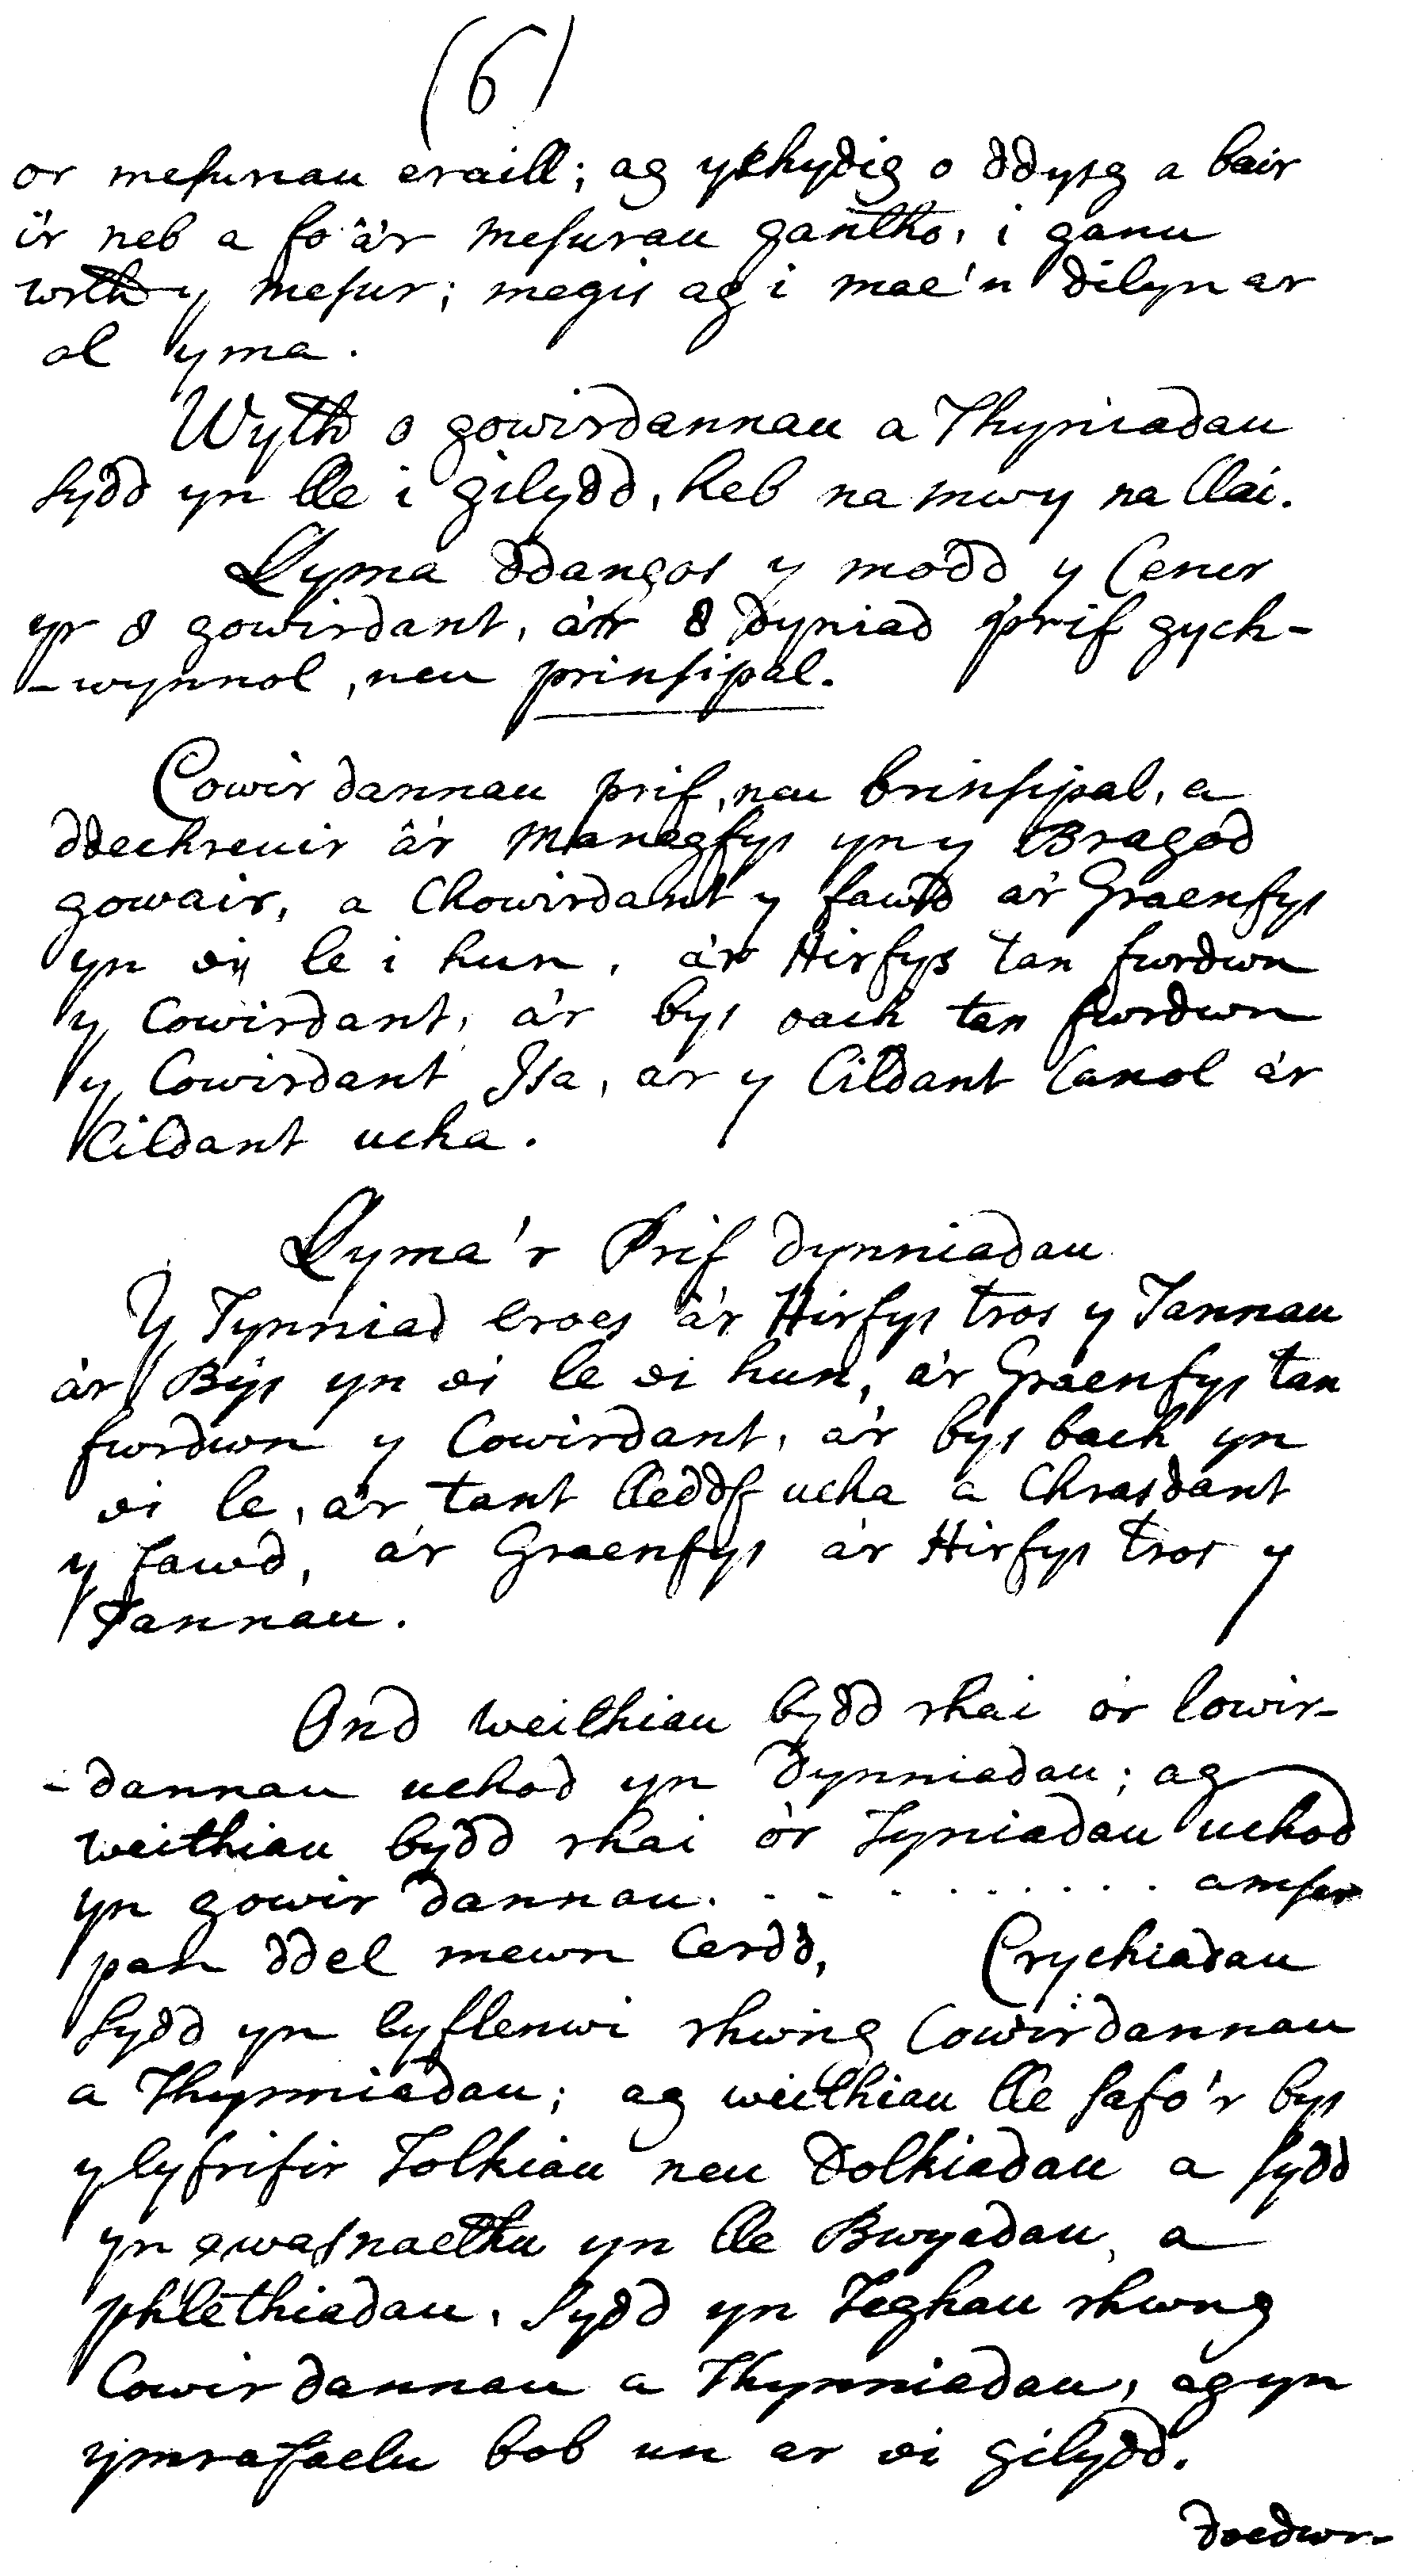 (6)
or mesurau eraill; ag ychydig o ddysg a bair
i'r neb a fo a'r mesurau gantho, i ganu
wrth y mesur; megis ag i mae'n dilyn ar
ol yma.
Wyth o gowirdannau a Thyniadau
sydd yn lle i gilydd, heb na mwy na llai.
Llyma ddangos y modd y Cener
yr 8 gowirdant, a'r 8 dyniad prif gych-
-wynnol, neu prinsipal.
Cowir dannau prif, neu brinsipal, a
ddechreuir â'r Manegfys yn y Bragod
gowair, a Chowirdant y fawd a'r Graenfys
yn ei le i hun, a'r Hirfys tan fwrdwn
y Cowirdant, a'r bys bach tan fwrdwn
y Cowirdant Isa, ar y Cildant Canol a'r
Cildant ucha.
Llyma'r Prif dynniadau
Y Tynniad Croes a'r Hirfys tros y Tannau
a'r Bys yn ei le ei hun, a'r Graenfys tan
fwrdwn y Cowirdant, a'r bys bach yn
ei le, a'r tant lleddf ucha a Chrasdant
y fawd, a'r Graenfys a'r Hirfys tros y
Tannau.
Ond weithiau bydd rhai o'r Cowir-
-dannau uchod yn dynniadau; ag
weithiau bydd rhai o'r Tyniadau uchod
yn gowir dannau. . . . . . . . . . amser
pan ddel mewn Cerdd, Crychiadau
sydd yn Cyflenwi rhwng Cowirdannau
a Thynniadau; ag weithiau lle safo'r bys
y cyfrifir Tolkiau neu Dolkiadau a sydd
yn gwasnaethu yn lle Bwyadau, a
phlethiadau, sydd yn Teghau rhwng
Cowir dannau a Thynniadau, ag yn
ymrafaelu bob un ar ei gilydd.
doedwn